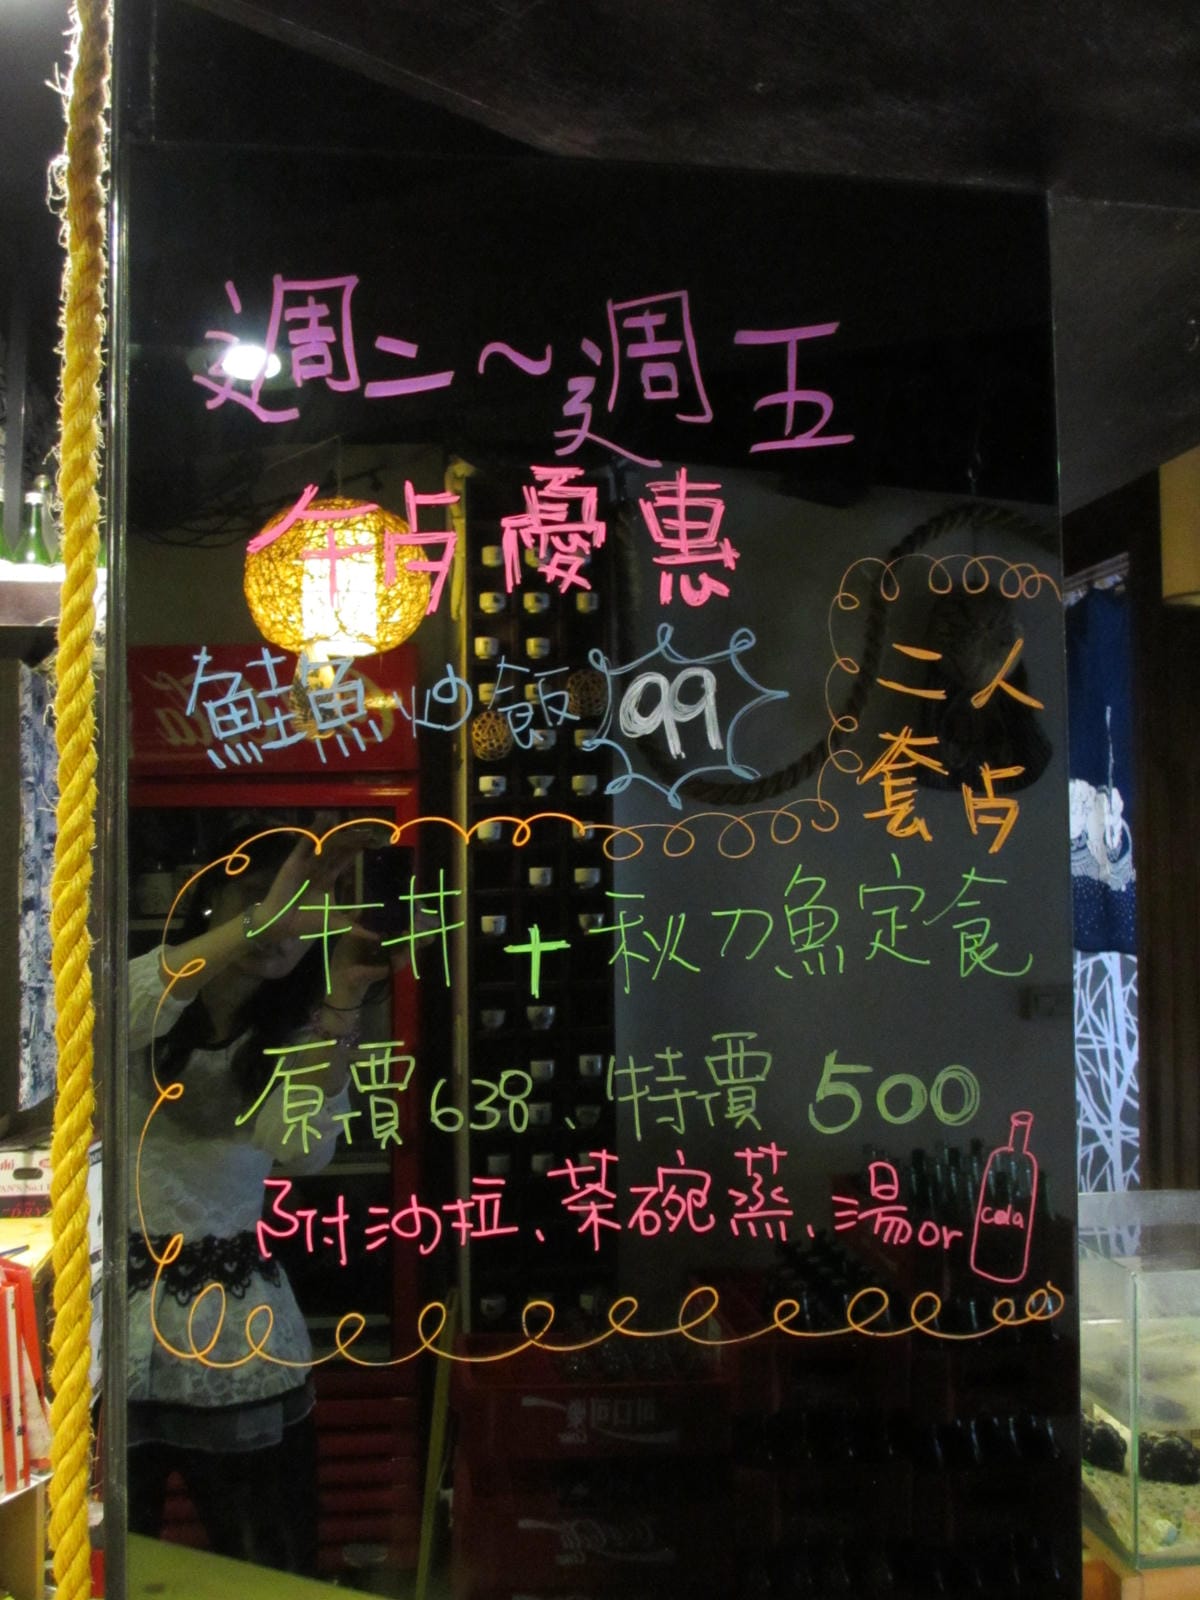 週二～週五
午占優惠
鮭魚炒飯 99
二人
套占
牛丼+秋刀魚定食
原價638、特價500
附沙拉、茶碗蒸、湯or cola